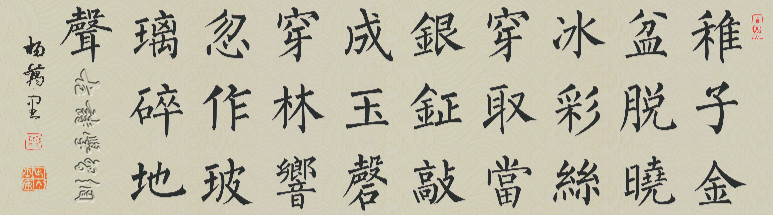 稚子金
盆脱曉
冰彩絲
穿取當
銀鉦敲
成玉磬
穿林響
忽作玻
璃碎地
聲
楊萬里